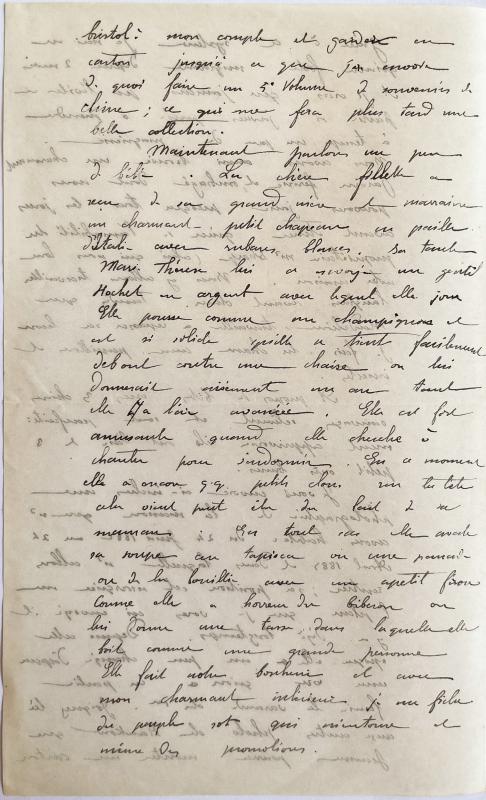 bristol à mon compte et garder en
cartons jusqu'à ce que j'en envoie
de quoi faire un 3e volume de souvenirs de
Chine ; ce qui me fera plus tard une
belle collection.
Maintenant parlons un peu
de bébé. La chère fillette a
reçu de sa grand mère et marraine
un charmant petit chapeau en paille
d'Italie avec rubans blancs. Sa tante
Marie Thérèse lui a envoyé un gentil
Hochet en argent avec lequel elle joue
Elle pousse comme un champignon et
est si solide qu'elle se tient facilement
debout contre une chaise on lui
donnerait aisément un an tant
elle a l'air avancée. Elle est fort
amusante quand elle cherche à
chanter pour s'endormir. En ce moment
elle a encore q.q. petits clous sur la tête
cela vient peut être du lait de sa
maman. En tout cas elle avale
sa soupe au tapioca ou une panade
ou de la bouillie avec un apetit féroce
Comme elle a horreur du biberon on
lui donne une tasse dans laquelle elle
boit comme une grande personne
Elle fait notre bonheur et avec
mon charmant intérieur je me fiche
du peuple sot qui m'entoure et
même des promotions.